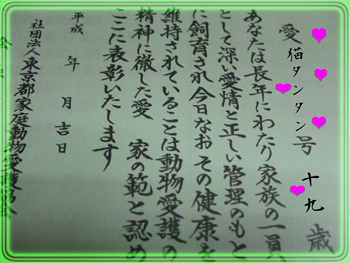 愛猫タンタン号 十九歳
あなたは長年にわたり家族の一員
として深い愛情と正しい管理のもと
に飼育され今日なおその健康を
維持されていることは動物愛護の
精神に徹した愛 家の範と認め
ここに表彰いたします
平成 年 月 吉日
社団法人東京都家庭動物愛護協会